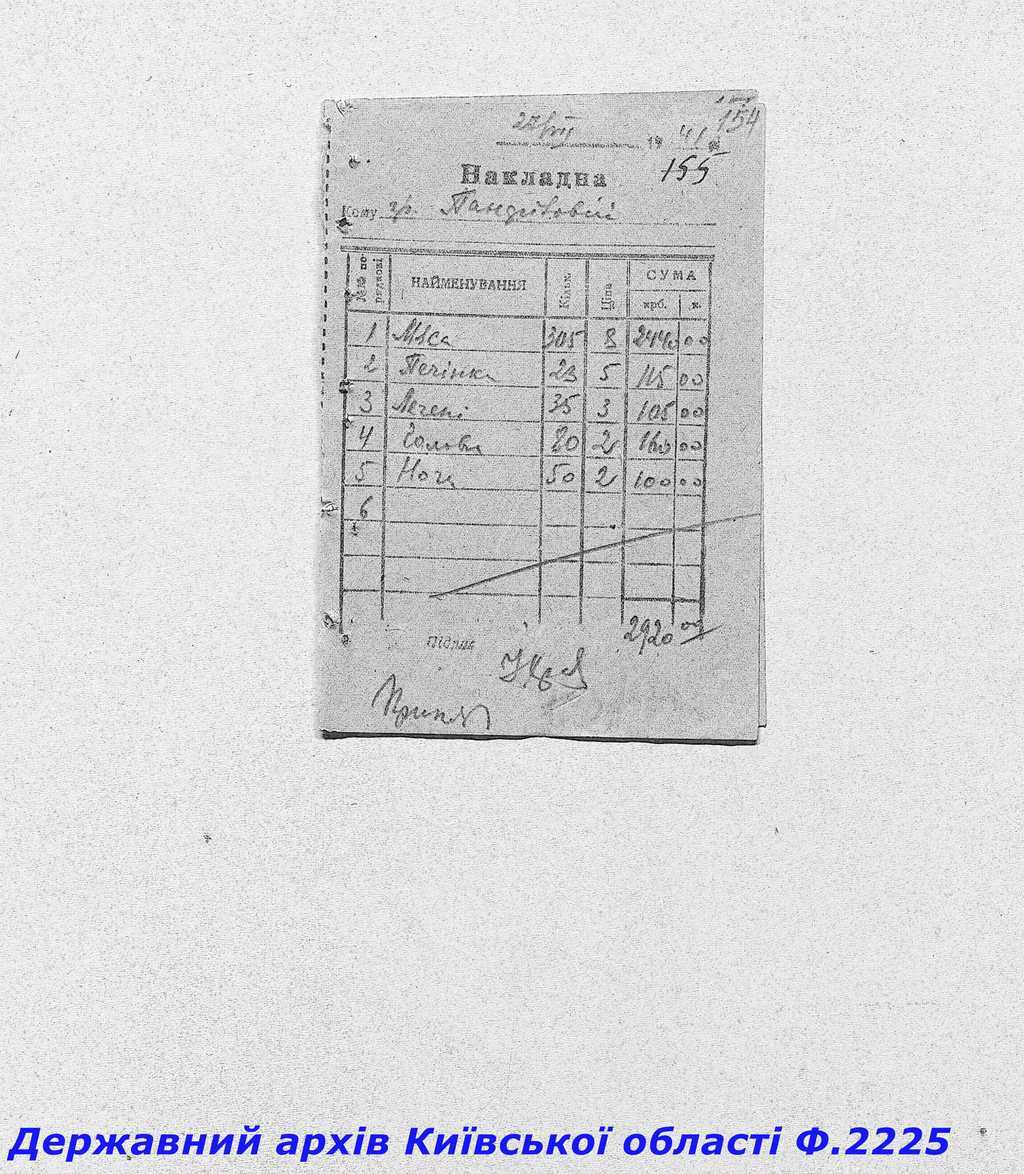 154
27/VII 19 41
155
Накладна
Кому гр.
№№ по рядкові НАЙМЕНУВАННЯ Кільк. Ціна СУМА крб. к.
1 Мяса 305 8 2440 00
2 Печінка 23 5 115 00
3 Легені 35 3 105 00
4 Голова 80 2 160 00
5 Ноги 50 2 100 00
6
2920 00
Підпис
Державний архів Київської області Ф.2225